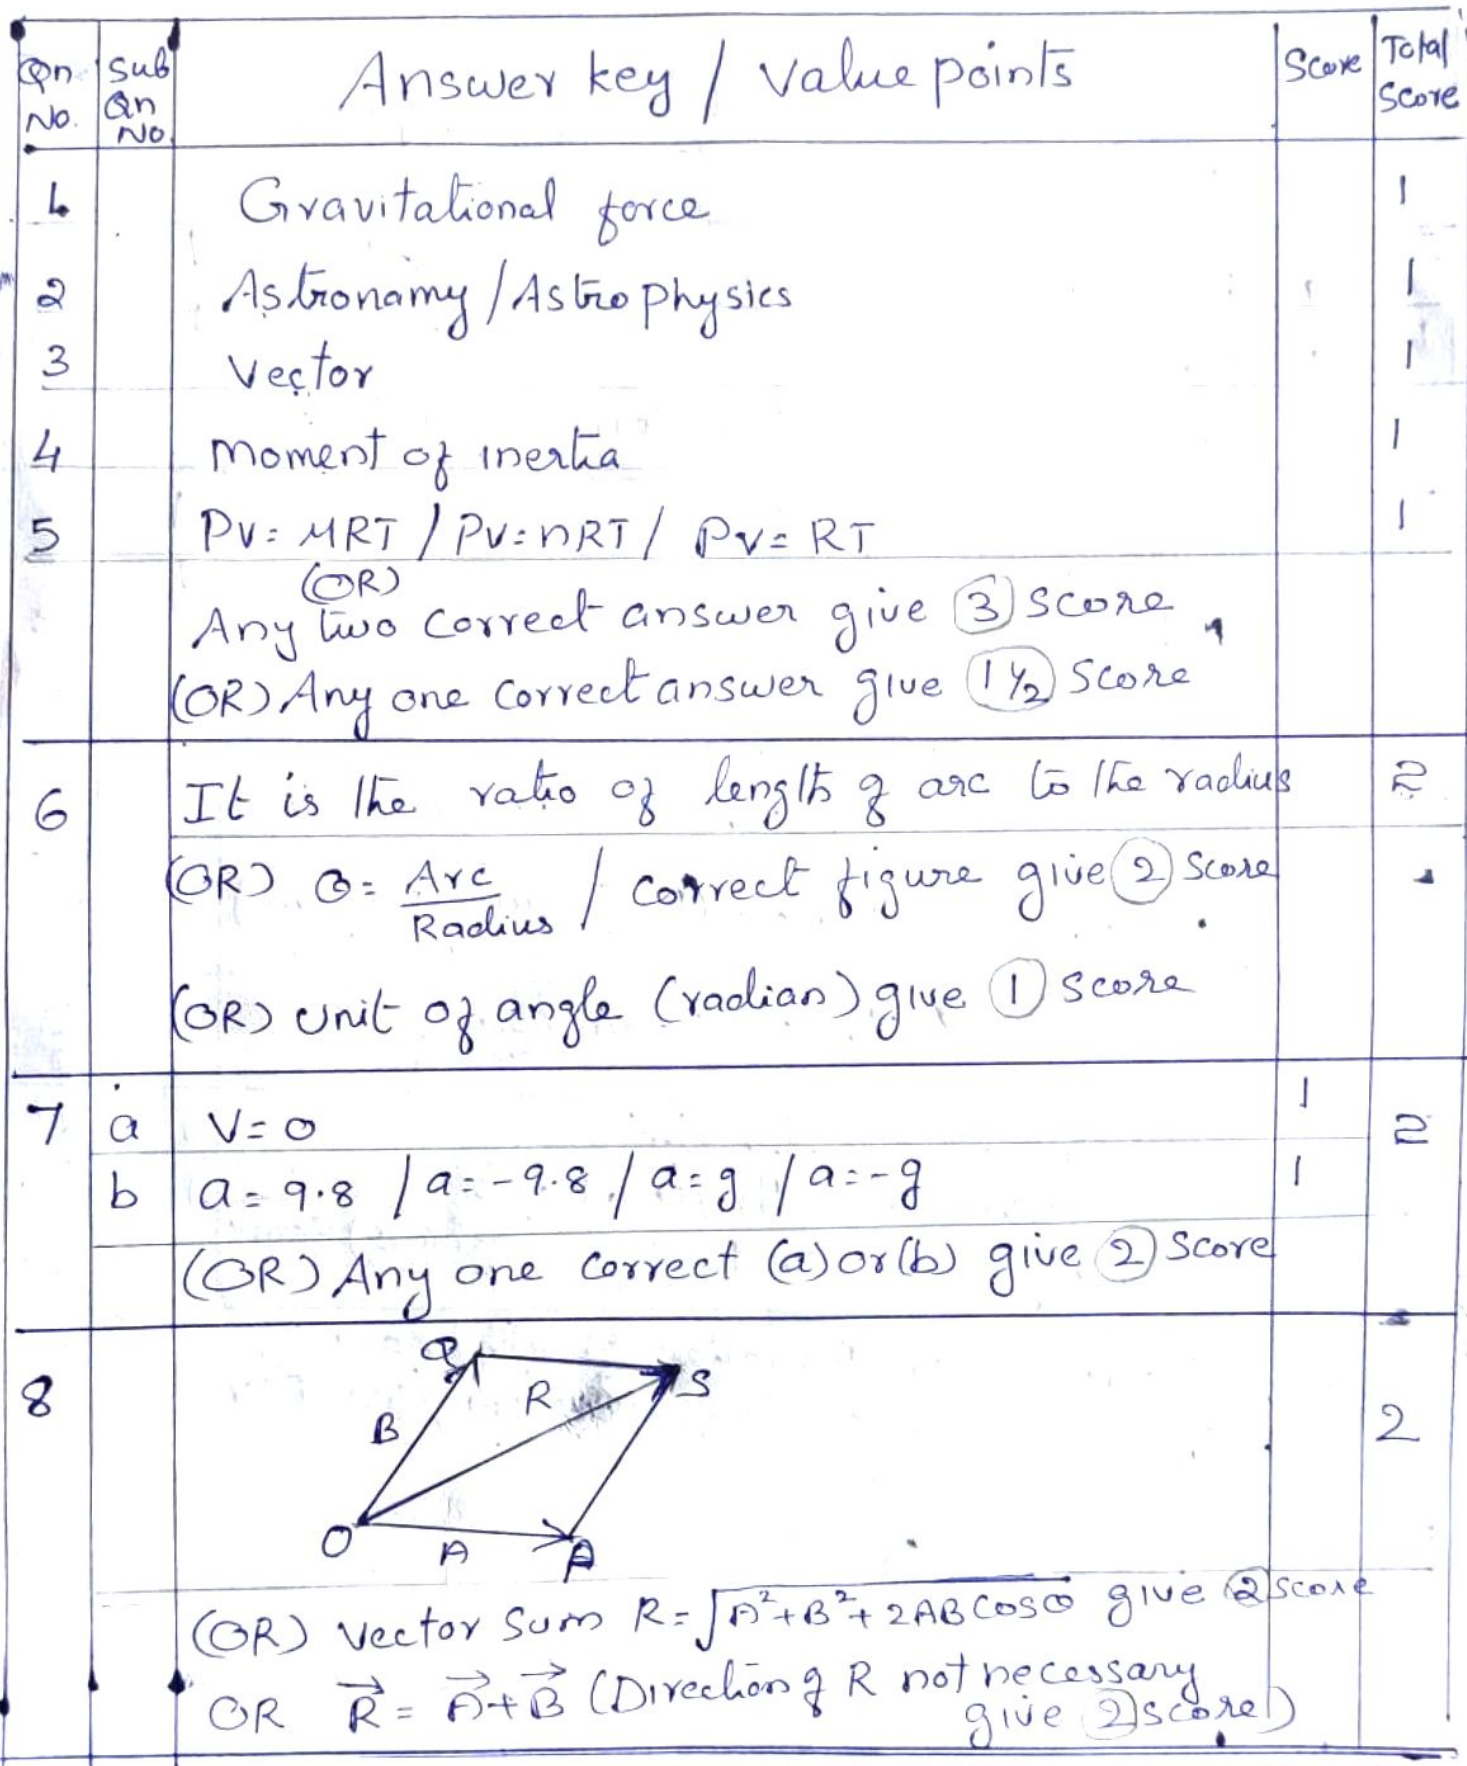 Qn No. Sub Qn No. Answer key / Value points Score Total Score
1. Gravitational force 1
2 Astronamy / Astrophysics 1
3 Vector 1
4 Moment of inertia 1
5 PV = μRT / PV = nRT / PV = RT 1
(OR)
Any two correct answer give 3 score
(OR) Any one correct answer give 1 ½ score
6 It is the ratio of length of arc to the radius 2
(OR) θ = Arc / Radius / correct figure give 2 score
(OR) unit of angle (radian) give 1 score
7 a V = 0 1 2
b a = 9.8 / a = -9.8 / a = g / a = -g 1
(OR) Any one correct (a) or (b) give 2 score
8 2
Q S
R
B
O A P
(OR) Vector sum R = √A²+B²+2ABCosθ give 2 score
OR R⃗ = A⃗+B⃗ (Direction of R not necessary
give 2 score)